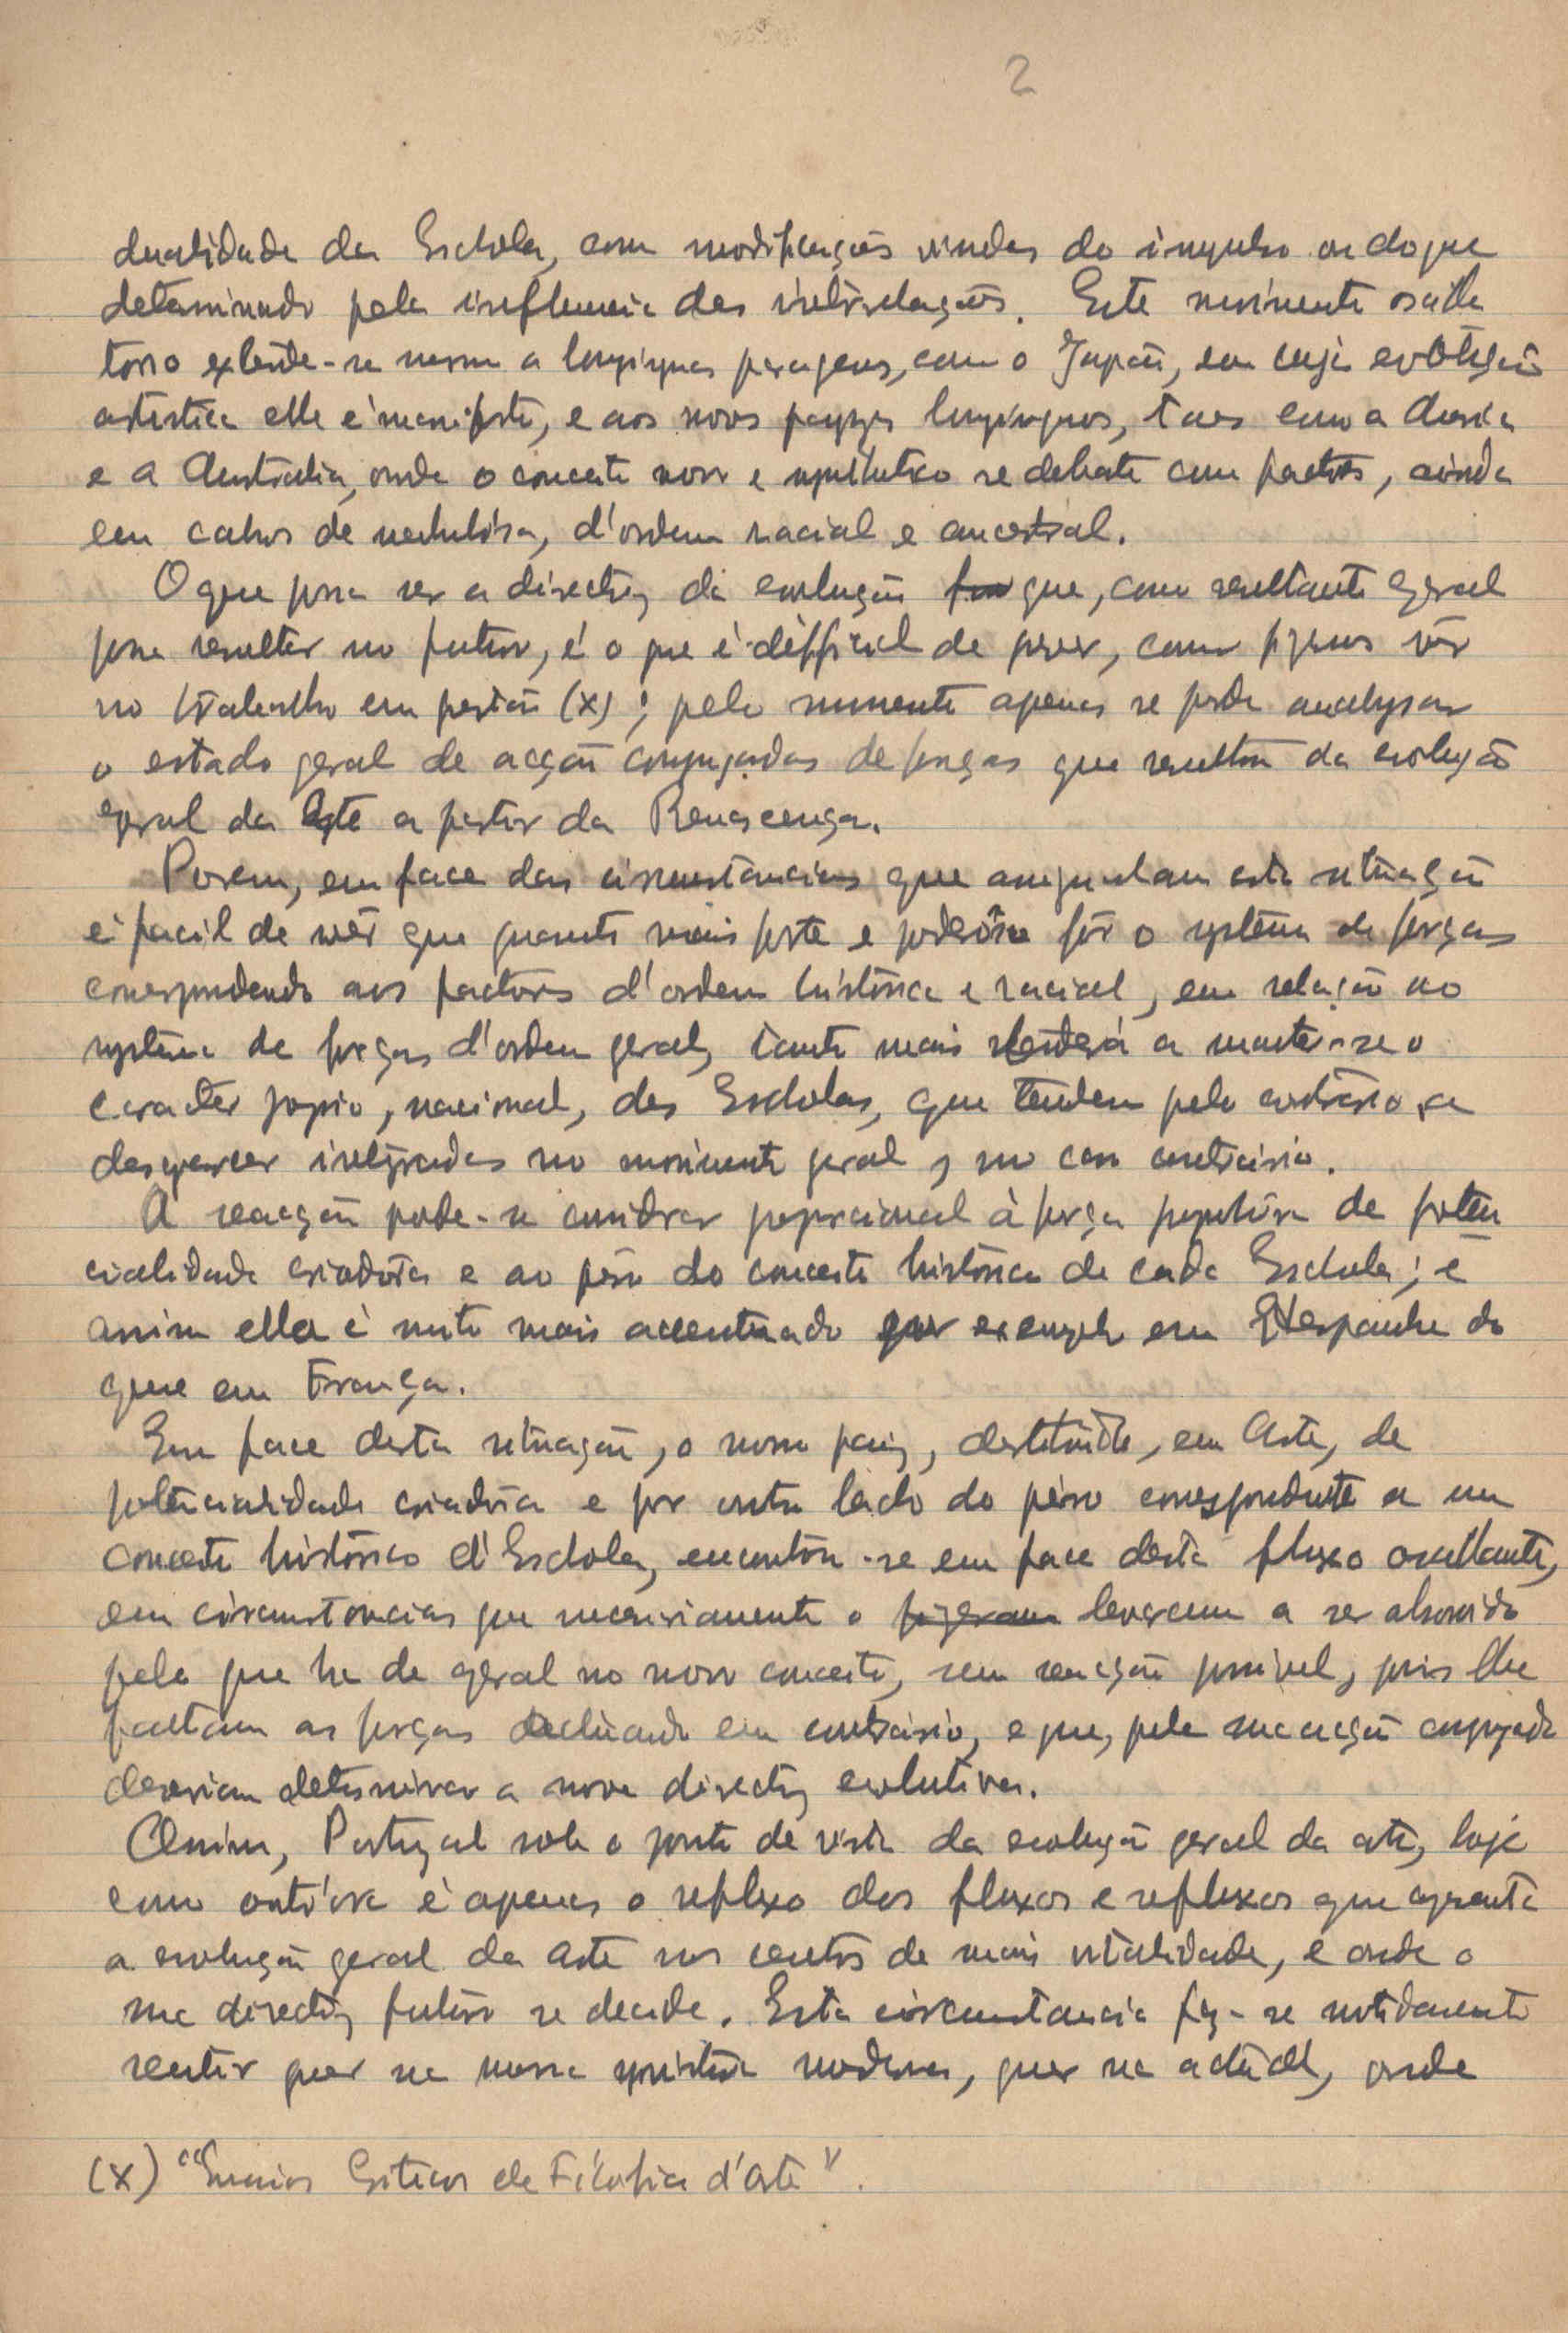 2
dualidade da Eschola, com modificações vindas do impulso ou choque
determinado pela influencia das interrelações. Este movimento oscilla
torio extende-se mesmo a longinquas paragens, como o Japão, em cuja evolução
artistica elle é manifesto, e aos novos payzes longinquos, taes como a
e a Australia, onde o conceito novo e synthetico se debate com factores, ainda
em cahos de nebulosa, d'ordem racial e ancestral.
O que possa ser a directriz da evolução que, como resultante geral
possa resultar no futuro, é o que é difficil de prever, como fizemos vêr
no trabalho em questão (x); pelo momento apenas se pode analysar
o estado geral de acção conjugadas de forças que resultou da evolução
geral da Arte a partir da Renascença.
Porem, em face das circunstancias que acompanham esta situação
é facil de vêr que quanto mais forte e poderoso fôr o systema de forças
correspondendo aos factores d'ordem historica e racial, em relação ao
systema de forças d'ordem geral, tanto mais tenderá a manter-se o
caracter proprio, nacional, das Escholas, que tendem pelo contrario, a
desaparecer integradas no movimento geral, no caso contrario.
A reacção pode-se considerar proporcional à força propulsora de poten
cialidade criadora e ao pêso do conceito historico de cada Eschola; e
assim ella é muito mais accentuado por exemplo em Hespanha do
que em França.
Em face desta situação, o nosso paiz, destituido, em Arte, de
potencialidade criadora e por outro lado do pêso correspondente a um
conceito histórico d'Eschola, encontra-se em face deste fluxo oscillante,
em circumstancias que necessariamente o fizeram levaram a ser absorvido
pelo que ha de geral no novo conceito, sem reacção possivel, pois lhe
faltam as forças actuando em contrario, e que, pela sua acção conjugada
deveriam determinar a nova directriz evolutiva.
Assim, Portugal sob o ponto de vista da evolução geral da arte, hoje
como outr'ora é apenas o reflexo dos fluxos e refluxos que apresenta
a evolução geral da arte nos centros de mais vitalidade, e onde a
sua directriz futura se decide. Esta circumstancia fez-se nitidamente
sentir quer na nossa pintura moderna, quer na actual, onde
(x) "Ensaios Criticos de Filosofia d'Arte".